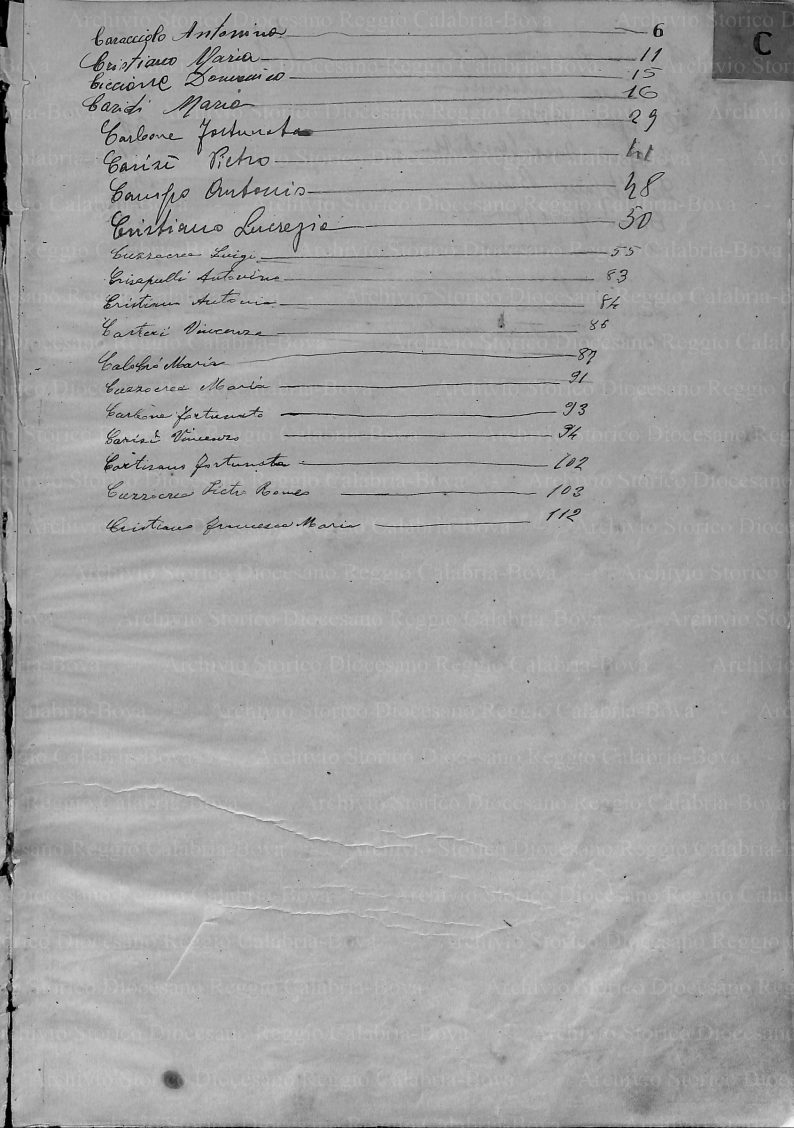 C
Caracciolo Antonino 6
Cristiano Maria 11
Ciccione Domenico 15
Caridi Maria 16
Carbone Fortunata 29
Carisì Pietro 41
Campo Antonio 48
Cristiano Lucrezia 50
Cuzzocrea Luigi 55
Crisapulli Antonino 83
Cristiano Antonia 84
Carteri Vincenza 86
Calabrò Maria 87
Cuzzocrea Maria 91
Carbone Fortunato 93
Carisì Vincenzo 94
Cortisano Fortunata 102
Cuzzocrea Pietro Romeo 103
Cristiano Francesca Maria 112
Archivio Storico Diocesano Reggio Calabria-Bova